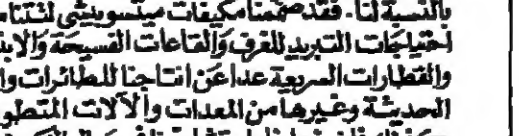 بالنسبة لنا. فقد صممنا مكيفات ميتسوبيشي لتتنا
احتياجات التبريد للغرف والقاعات الفسيحة والابن
والقطارات السريعة عدا عن انتاجنا للطائرات وا
الحديثة وغيرها من المعدات والآلات المتطو